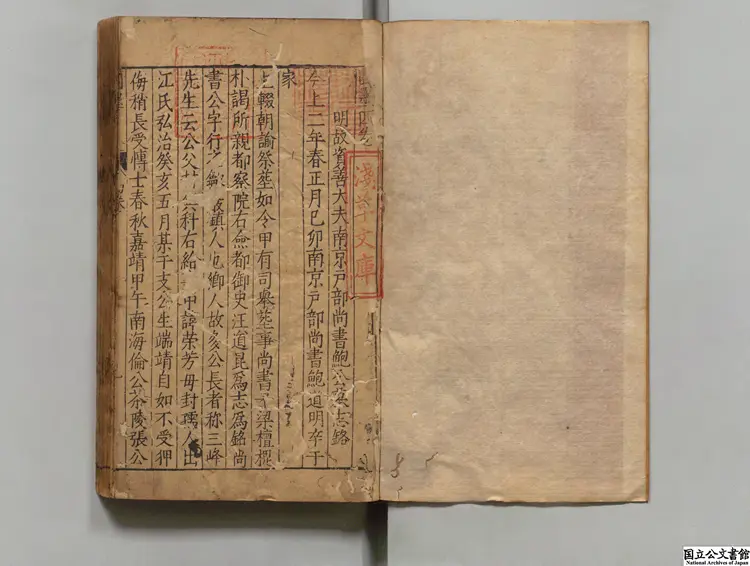 明故資善大夫南京戶部尚書鮑公墓志銘
今上二年春正月己卯南京戶部尚書鮑道明卒于
家
上輟朝諭祭塋如令甲有司舉塋事尚書子梁檀樞
朴謁所親都察院右僉都御史汪道昆為志為銘尚
書公字行之歙 鎮人也鄉人故多公長者称三峰
先生云公父 科右給 甲諱荣芳母封孺人出
江氏弘治癸亥五月某干支公生端靖自如不受狎
侮稍長受愽士春秋嘉靖甲午南海倫公茶陵張公
淺草文庫
国立公文書館
National Archives of Japan